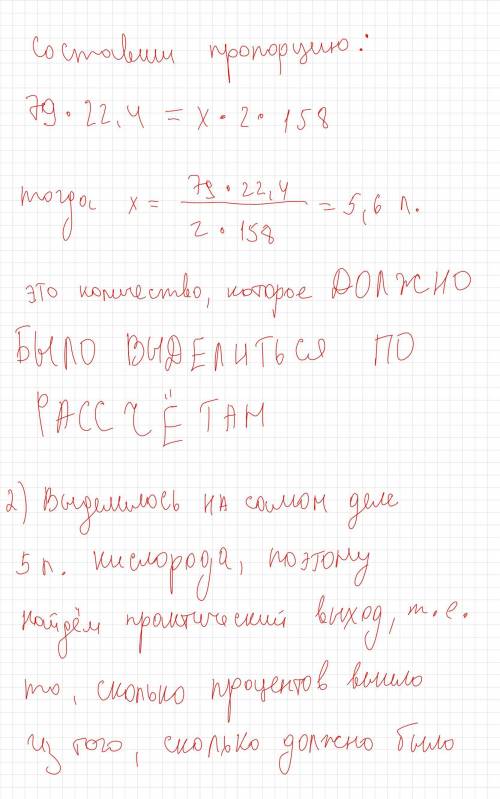 составим пропорцию:
79 · 22,4 = x · 2 · 158
тогда x = 79 · 22,4 / 2 · 158 = 5,6 л.
это количество, которое ДОЛЖНО
БЫЛО ВЫДЕЛИТЬСЯ ПО
РАССЧЁТАМ
2) Выделилось на самом деле
5 л. кислорода, поэтому
найдём практический выход, т.е.
то, сколько процентов вышло
из того, сколько должно было